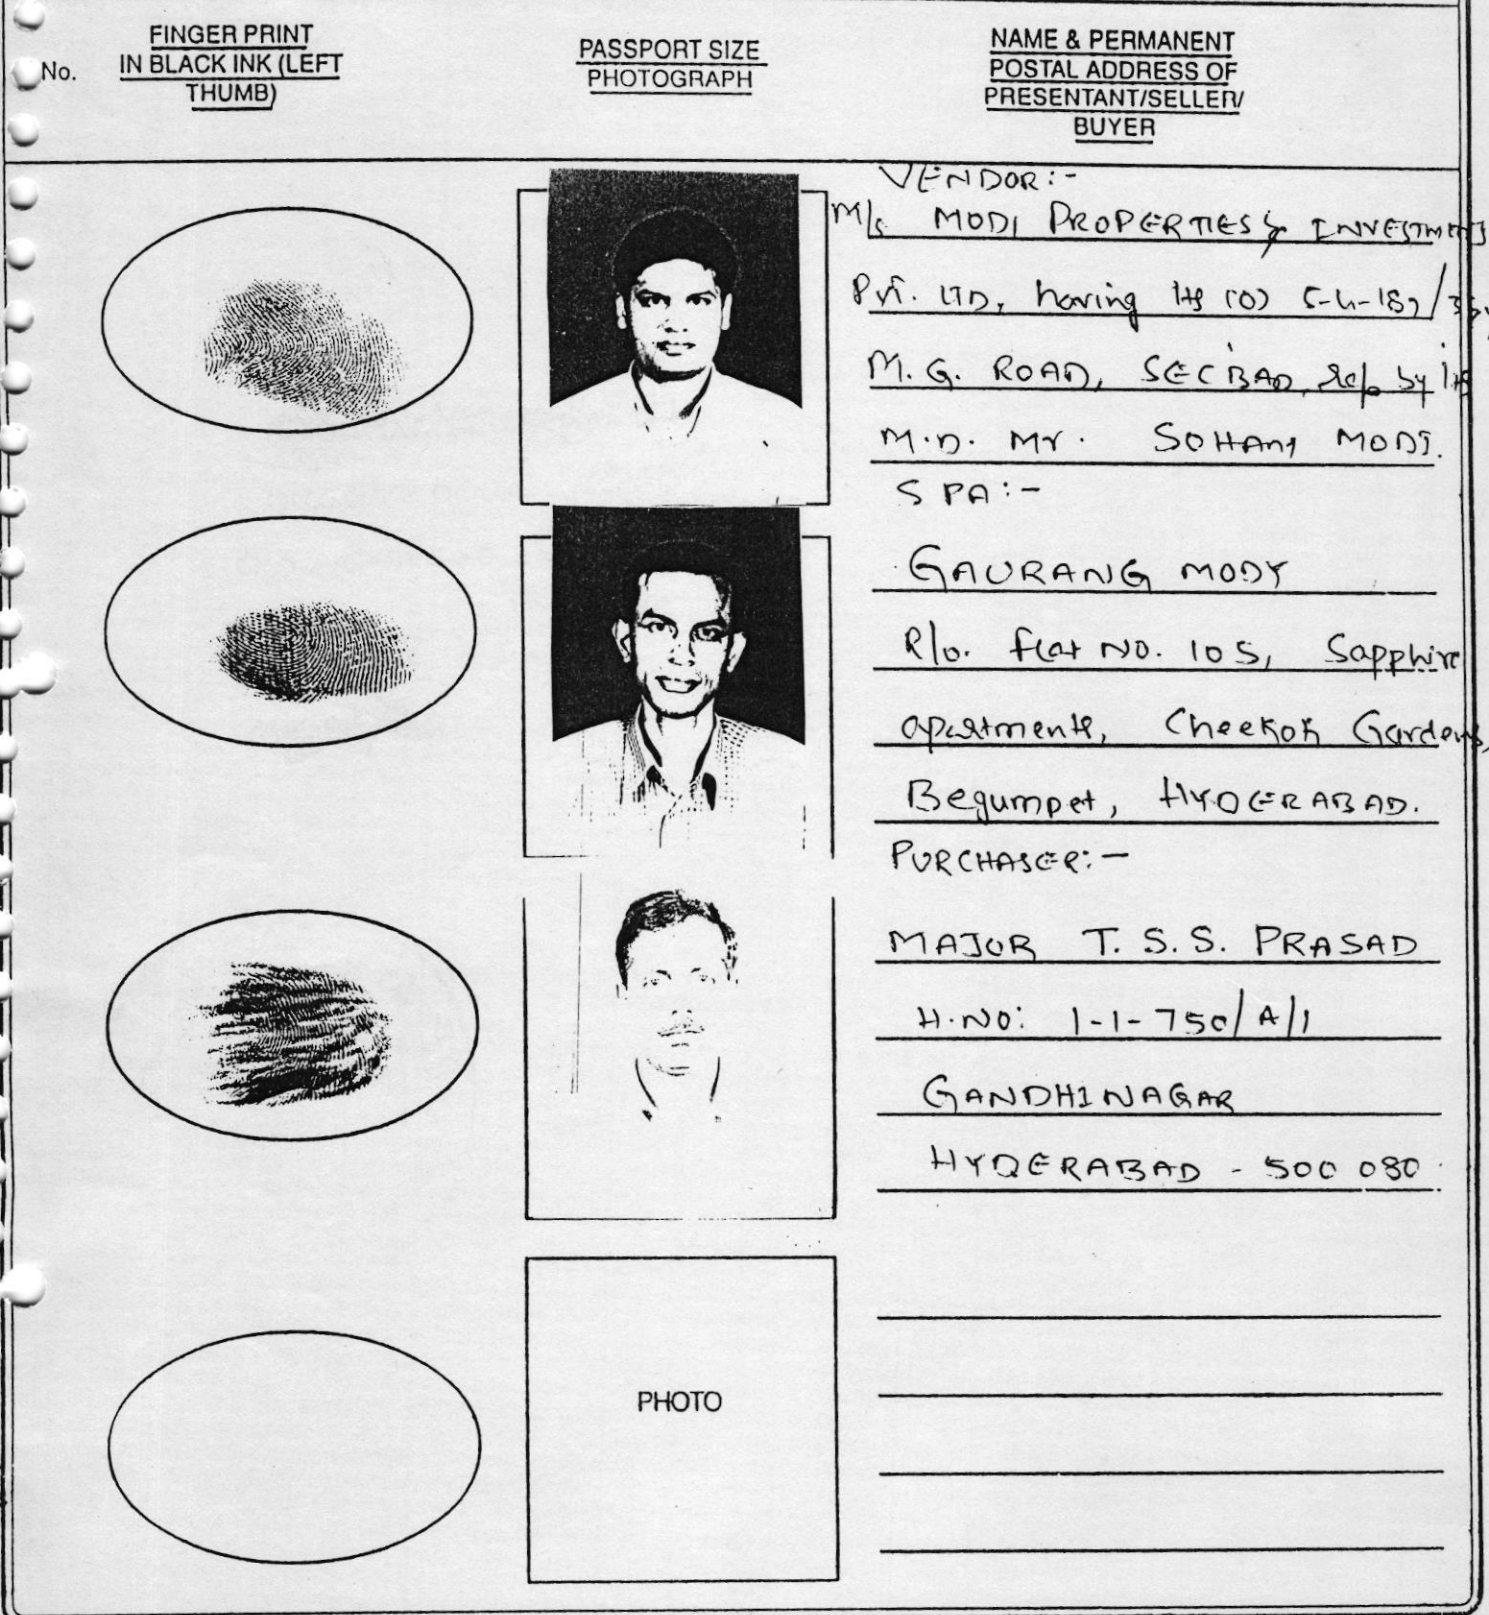 No.
FINGER PRINT
IN BLACK INK (LEFT
THUMB)
PASSPORT SIZE
PHOTOGRAPH
NAME & PERMANENT
POSTAL ADDRESS OF
PRESENTANT/SELLER/
BUYER
VENDOR:-
M/s MODI PROPERTIES & INVESTMENTS
Pvt. LTD, having its (O) 5-4-187/
M.G. ROAD, SEC'BAD, rep by its
M.D. Mr. SOHAM MODI.
SPA:-
GAURANG MODY
R/o. flat NO. 105, Sapphire
apartments, Cheekoti Gardens,
Begumpet, HYDERABAD.
PURCHASER:-
MAJOR T. S. S. PRASAD
H.NO: 1-1-750/A/1
GANDHINAGAR
HYDERABAD - 500 080.
PHOTO